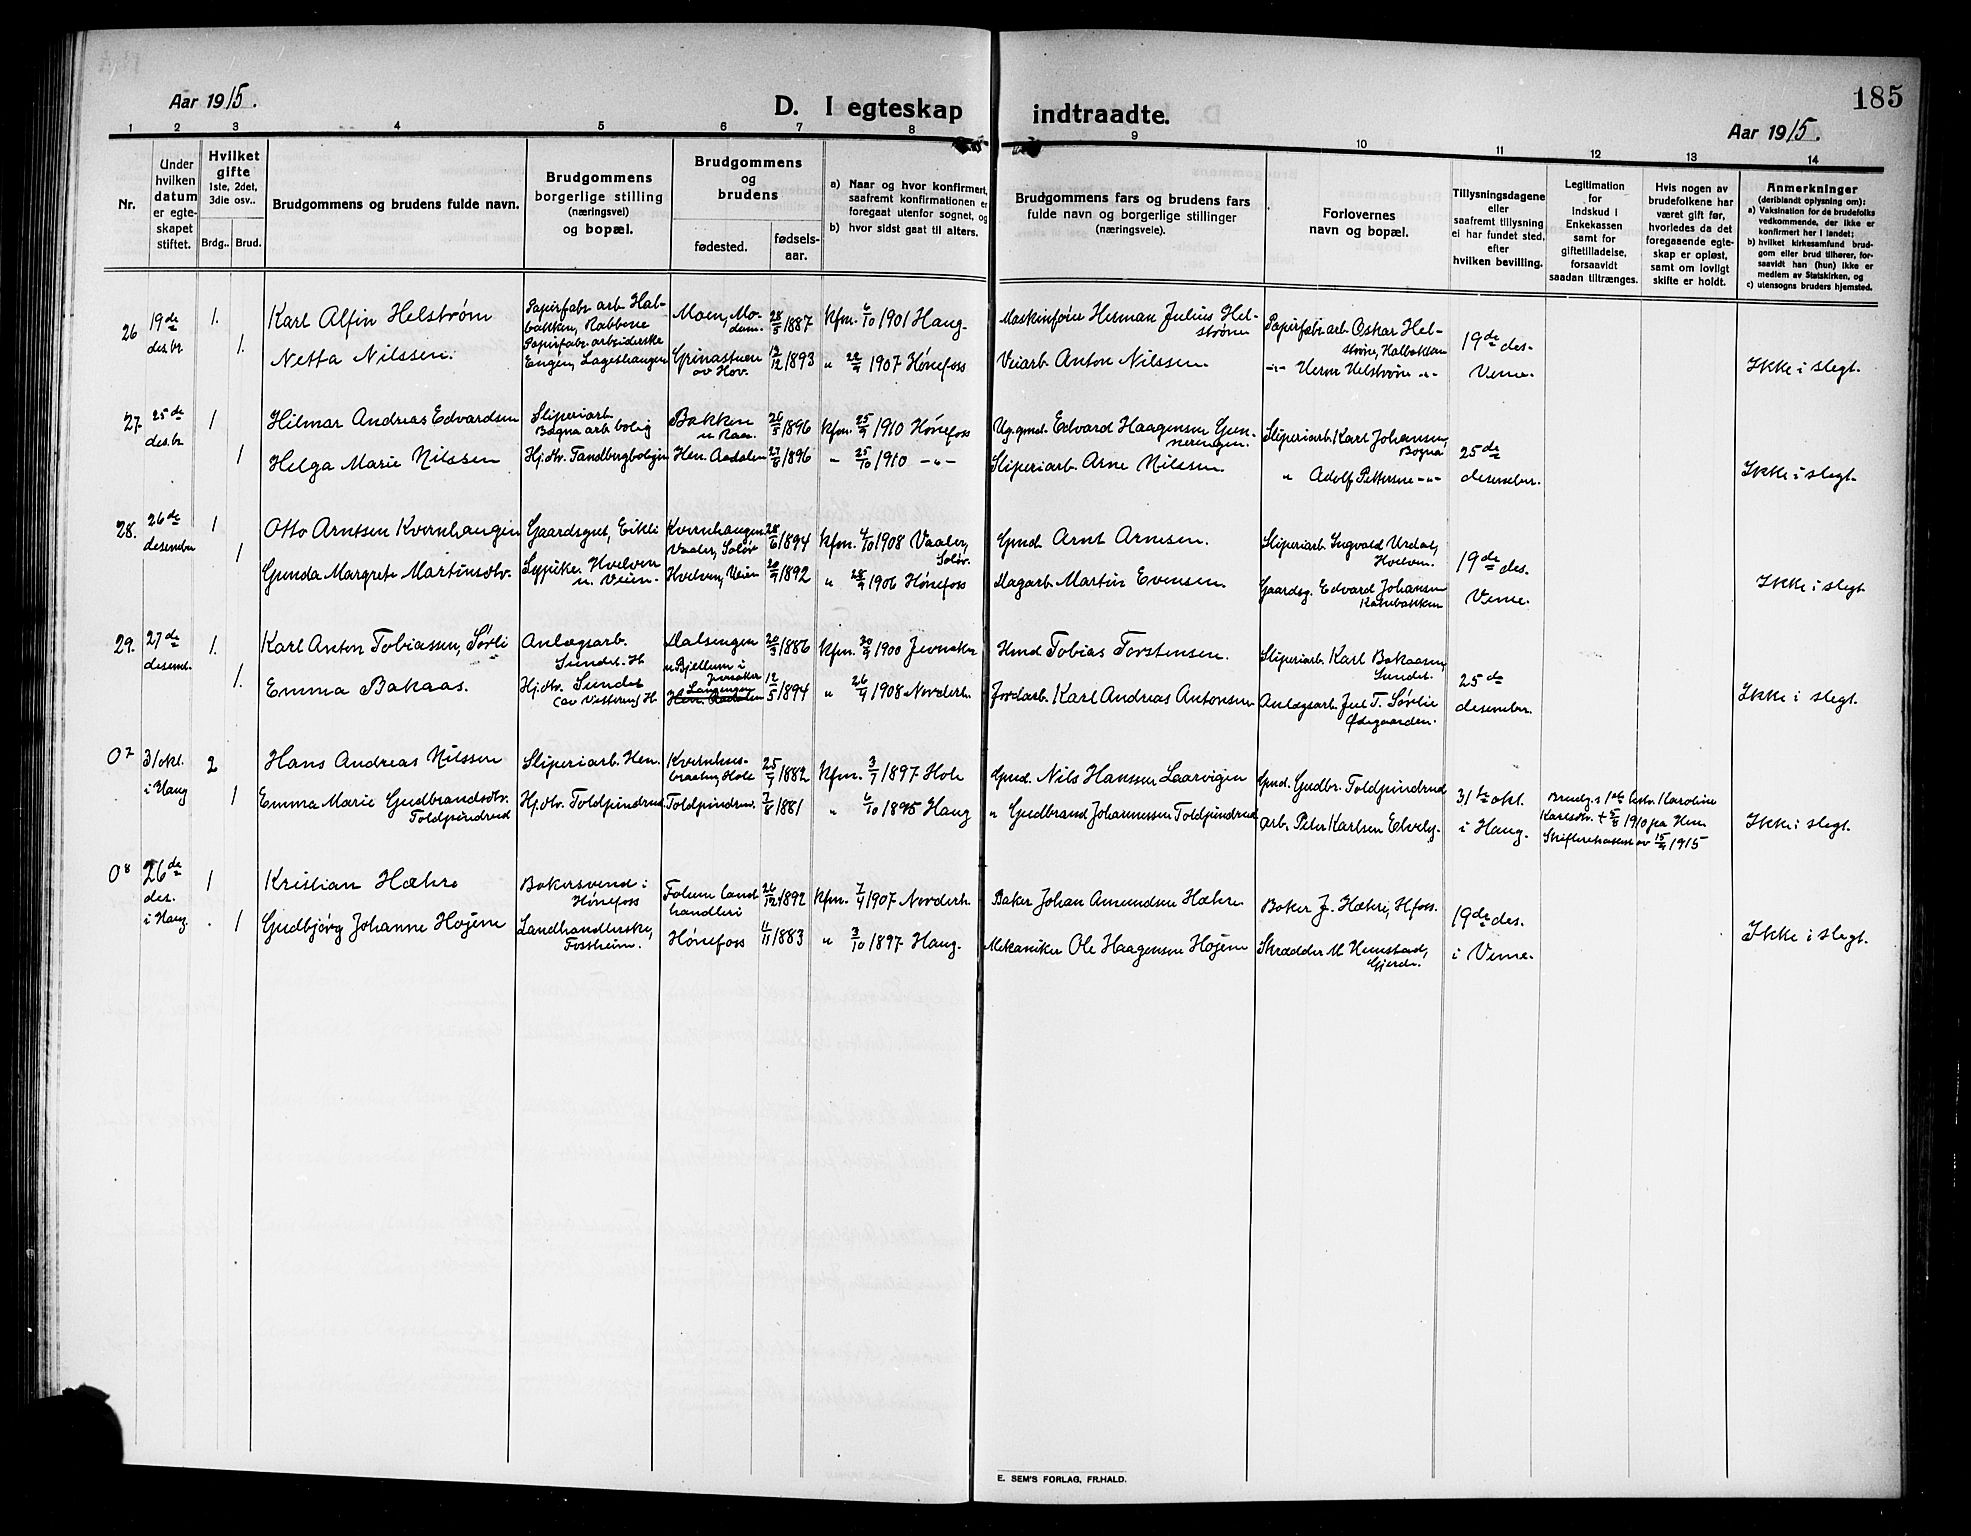 185
Aar 1915.
D. I egteskap indtraadte.
Aar 1915.
1 2 3 4 5 6 7 8 9 10 11 12 13 14
Nr.
Under hvilken datum er egteskapet stiftet.
Hvilket gifte
1ste, 2det, 3die osv..
Brdg.. Brud.
Brudgommens og brudens fulde navn.
Brudgommens borgerlige stilling (næringsvei) og bopæl.
Brudgommens og brudens
fødested.
fødselsaar.
a) Naar og hvor konfirmert, saafremt konfirmationen er foregaat utenfor sognet, og
b) hvor sidst gaat til alters.
Brudgommens fars og brudens fars fulde navn og borgerlige stillinger (næringsveie).
Forlovernes navn og bopæl.
Tillysningsdagene eller saafremt tillysning ei har fundet sted, efter hvilken bevilling.
Legitimation for Indskud i Enkekassen samt for giftetilladelse, forsaavidt saadan tiltrænges.
Hvis nogen av brudefolkene har været gift før, hvorledes da det foregaaende egteskap er opløst, samt om lovligt skifte er holdt.
Anmerkninger
(deriblandt oplysning om):
a) Vaksination for de brudefolks vedkommende, der ikke er konfirmert her i landet;
b) hvilket kirkesamfund brudgom eller brud tilhører, forsaavidt han (hun) ikke er medlem av Statskirken, og
c) utensogns bruders hjemsted.
26 19de des.br 1. Karl Alfin Helstrøm Papirfabr. arb. Halbakken, Moen, Modum. 28/5 1887 kfm. 6/10 1901 Haug. Maskinfører Herman Julius Helstrøm Papirfabr. arb. Oskar Helstrøm, Halbakken 19de des.
1. Netta Nilssen. Papirfabr. arbeiderske Engen, Lageshaugen Grinastuen av Hov. 13/12 1893 " 22/9 1907 Hønefoss Veiarb. Anton Nilssen. -"- Herm Helstrøm -"- Veme. Ikke i slegt.
27 25de des.br 1 Hilmar Andreas Edvardsen Sliperiarb. Bægna arb.bolig Bakken u. Raa. 26/5 1896 kfm. 25/9 1910 Hønefoss Ug.gmd. Edvard Haagensen Sliperiarb. Karl Johansen, Bægna 25de
1 Helga Marie Nilssen Hj.dtr. Tandbergboligen Hen. Aadalen 27/8 1896 " 25/10 1910 -"- Sliperiarb. Arne Nilssen. " Adolf Pettersen -"- desember. Ikke i slegt.
28. 26de desember 1 Otto Arntsen Kvernhaugen Gaardsgut, Eikli Kvernhaugen Vaaler, Solør 28/6 1894 kfm. 4/10 1908 Vaaler, Solør. Gmd. Arnt Arnesen. Sliperiarb. Ingvald Urdal, Hvelven. 19de des.
1 Gunda Margrete Martinsdtr. Sypike. Hvelven u. Veien. Hvelven, Veien 20/9 1892 " 28/9 1906 Hønefoss Dagarb. Martin Evensen Gaardsg. Edvard Johansen Veme. Ikke i slegt.
29. 27de desemb. 1. Karl Anton Tobiassen, Sørli Anlægsarb. Sundet. H. Dalsengen u Bjellum i Jevnaker 20/3 1886 kfm. 30/9 1900 Jevnaker Hmd Tobias Torstensen. Sliperiarb. Karl Bakaasen, Sundet. 25de
1. Emma Bakaas. Hj.dtr. Sundet Hen. Aadalen 12/5 1894 " 26/4 1908 Norderh. Jordarb. Karl Andreas Antonsen Anlægsarb. Jul T. Sørlie Ødegaarden. desember. Ikke i slegt.
07 31 okt. i Haug 2 Hans Andreas Nilssen Sliperiarb. Hen. Kvernhusbraaten, Hole 25/9 1882 kfm. 3/7 1897 Hole Gmd. Nils Hanssen Laarvigen Gmd. Gudbr. Toldpindrud 31te okt.
1 Emma Marie Gudbrandsdtr. Toldpindrud Hj.dtr. Toldpindrud Toldpindrud. 7/8 1881 " 6/10 1895 Haug " Gudbrand Johannessen Toldpindrud arb. Peter Karlsen Elvely. i Haug. Brudg.s 1ste hstr. Karoline Karlsdtr. + 5/8 1910 paa Hen Skifterets av 15/4 1915 Ikke i slegt.
08 26de des. i Haug 1 Kristian Hæhre Bakersvend i Hønefoss Folum landhandleri 26/12 1892 kfm. 7/4 1907 Norderh. Baker Johan Amundsen Hæhre Baker J. Hæhre, Hfoss. 19de des.
1 Gudbjørg Johanne Højem Landhandlerske, Fossheim. Hønefoss 4/11 1883 " 3/10 1897 Haug. Mekaniker Ole Haagensen Højem Skrædder M Hemstad, Gjerde. i Veme. Ikke i slegt.
E. SEM'S FORLAG, FR.HALD.